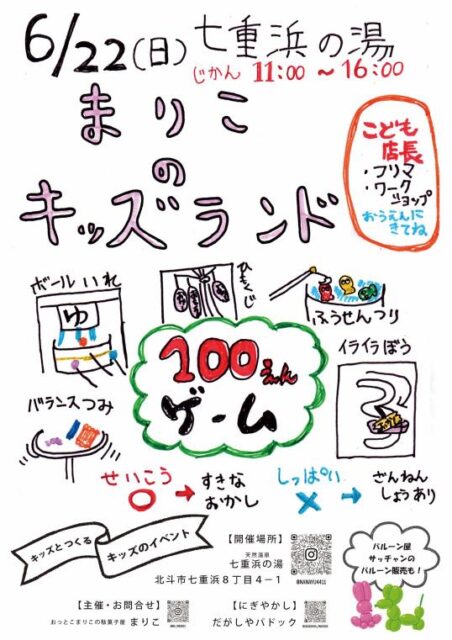 6/22(日) 七重浜の湯
じかん 11:00 ~16:00
まりこ
の
キッズランド
こども
店長
・フリマ
・ワーク
ショップ
おうえんに
きてね
ボールいれ
ゆ
ひもくじ
ふうせんつり
100えん
ゲーム
イライラぼう
バランスつみ
せいこう
○→すきな
おかし
しっぱい
×→ざんねん
しょうあり
キッズとつくる
キッズのイベント
【開催場所】
天然温泉
七重浜の湯
北斗市七重浜8丁目4−1
バルーン屋
サッチャンの
バルーン販売も!
【主催・お問合せ】
おっとこまりこの駄菓子屋 まりこ
【にぎやかし】
だがしやパドック